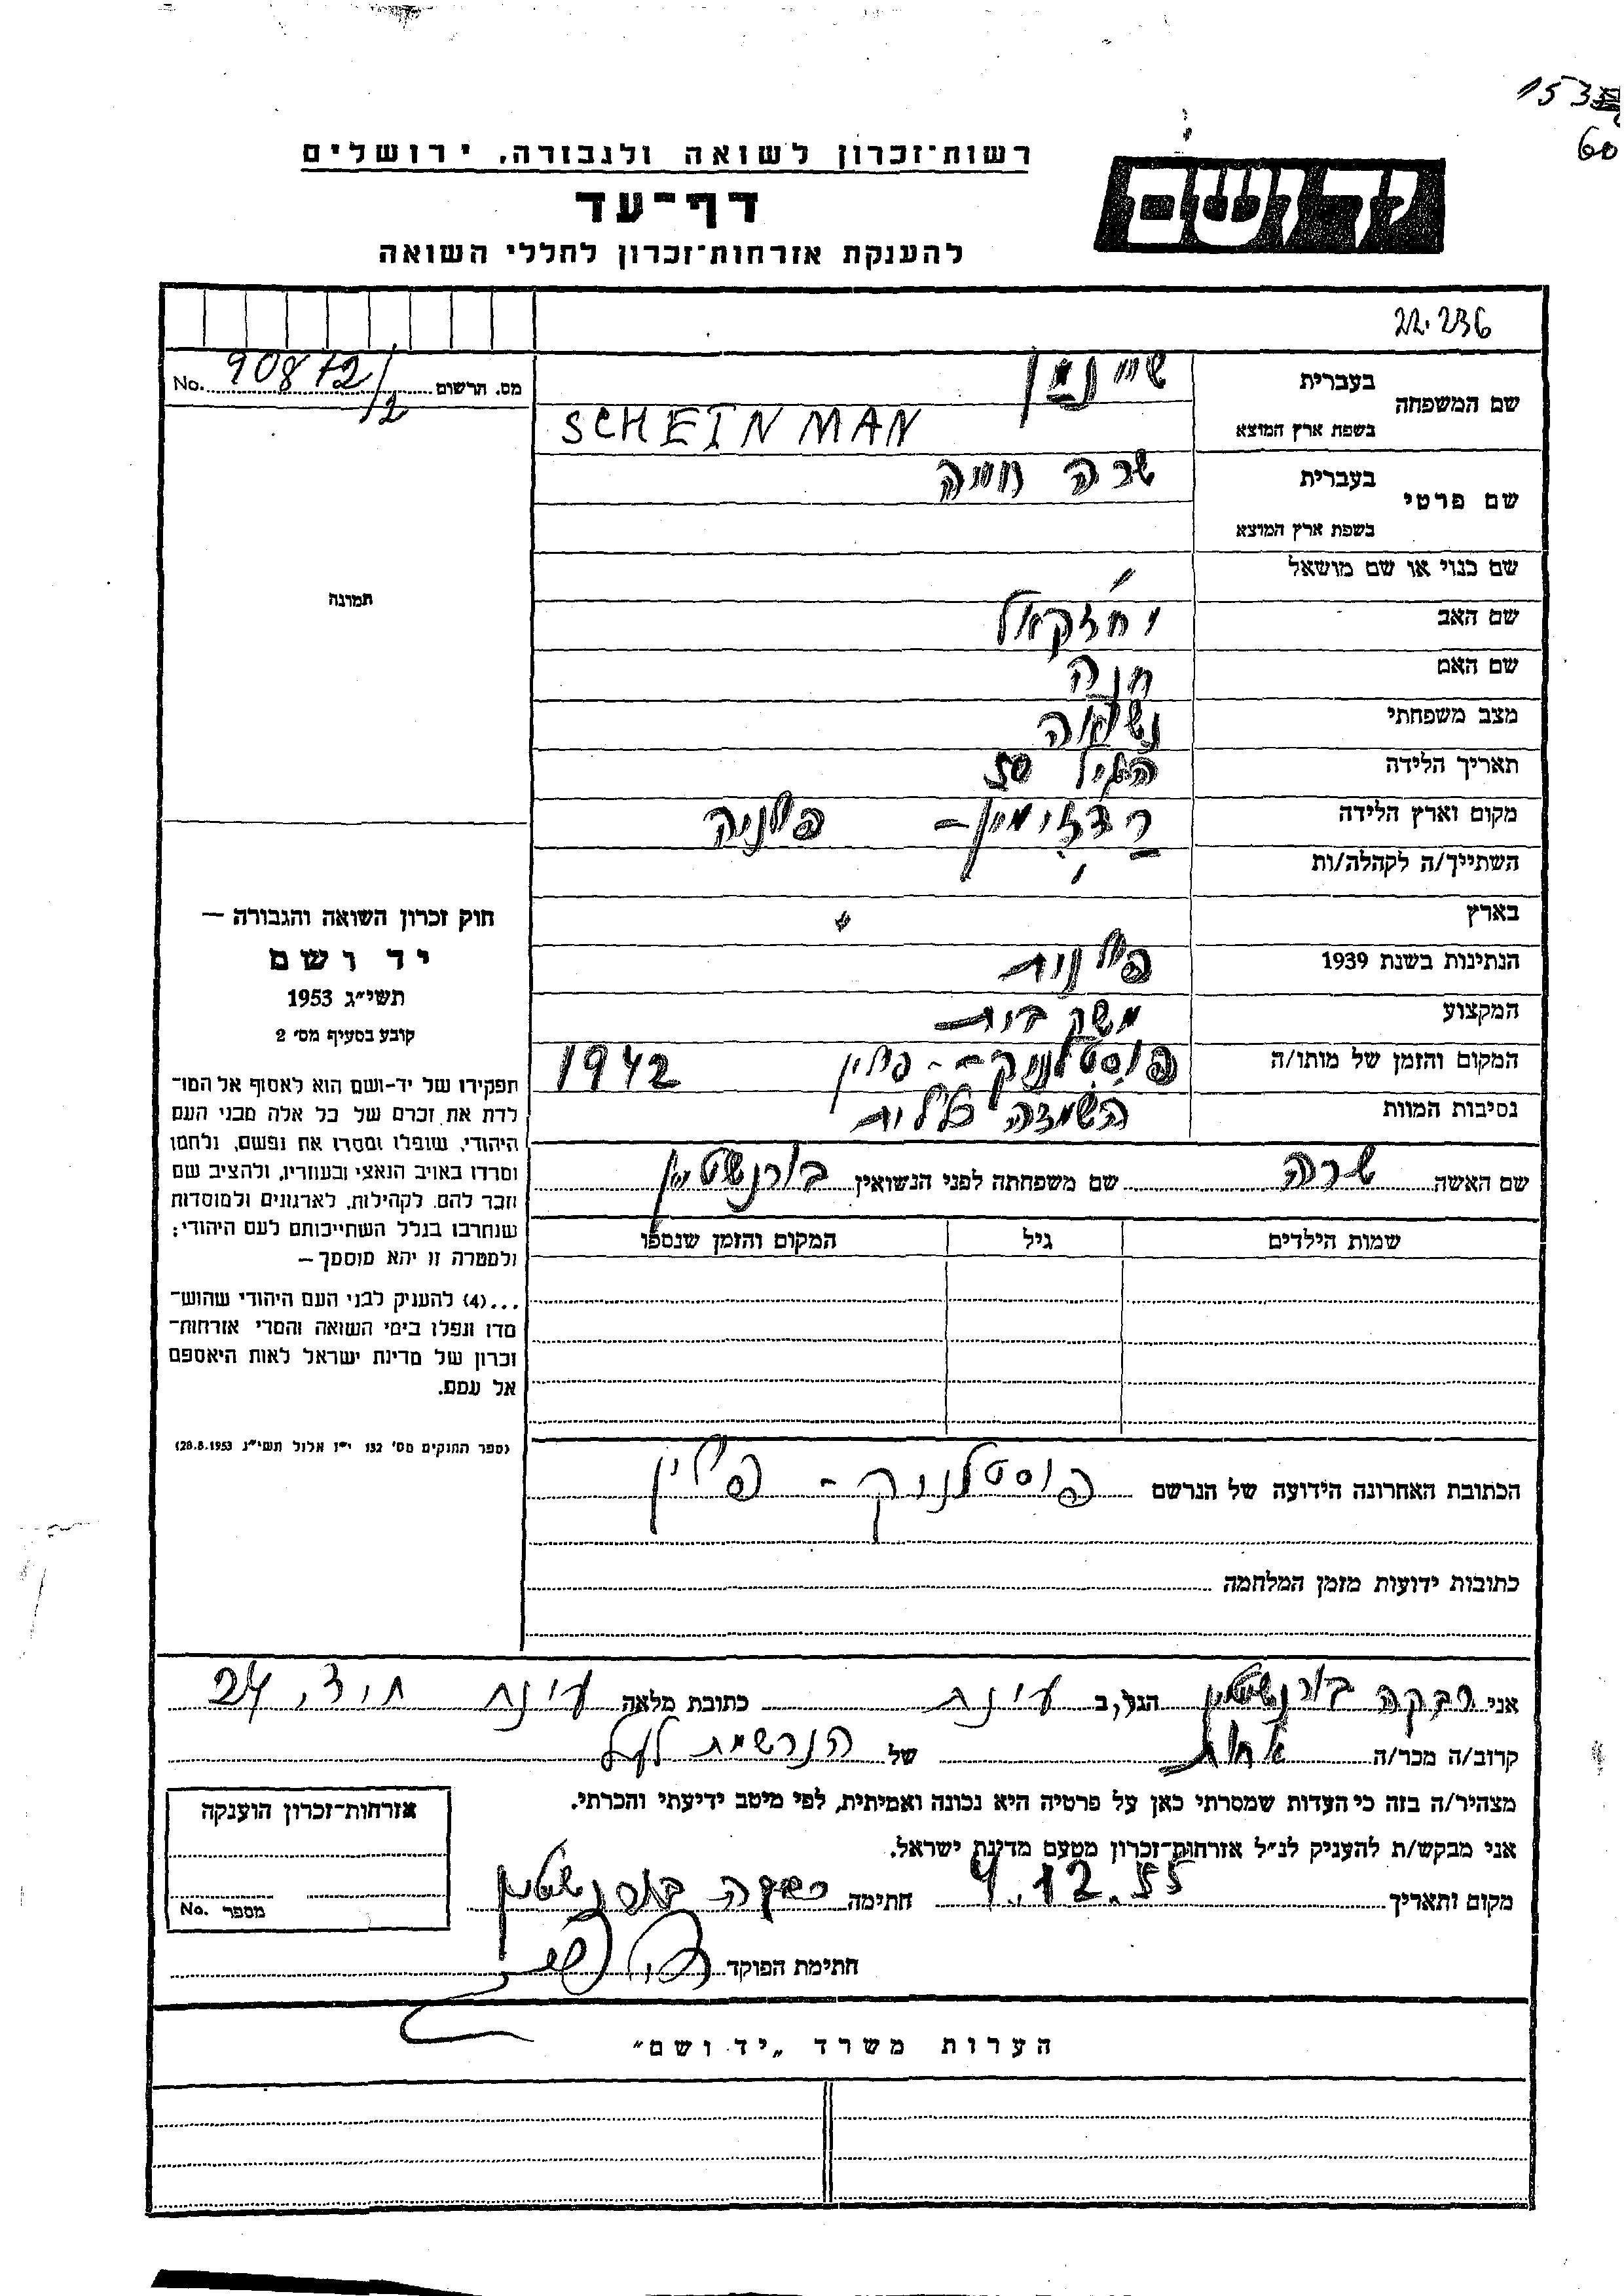 153
60
רשות־זכרון לשואה ולגבורה, ירושלים
יד ושם
דף־עד
להענקת אזרחות־זכרון לחללי השואה
22.236
מס. הרשום 90872/2 No.
שם המשפחה בעברית שיינמן
בשפת ארץ המוצא SCHEINMAN
שם פרטי בעברית שרה חיה
בשפת ארץ המוצא
שם כנוי או שם מושאל
שם האב יחזקאל
שם האם חנה
מצב משפחתי נשואה
תאריך הלידה הגיל 50
מקום וארץ הלידה רדזימין - פולניה
השתייך/ה לקהלה/ות
בארץ
הנתינות בשנת 1939 פולנית
המקצוע משק בית
המקום והזמן של מותו/ה פוסטלניק - פולין 1942
נסיבות המוות השמדה כללית
שם האשה שרה שם משפחתה לפני הנשואין בורנשטיין
שמות הילדים גיל המקום והזמן שנספו
הכתובת האחרונה הידועה של הנרשם פוסטלניק - פולין
כתובות ידועות מזמן המלחמה
תמונה
חוק זכרון השואה והגבורה —
יד ושם
תשי״ג 1953
קובע בסעיף מס׳ 2
תפקידו של יד-ושם הוא לאסוף אל המו־
לדת את זכרם של כל אלה מבני העם
היהודי, שנפלו ומסרו את נפשם, נלחמו
ומרדו באויב הנאצי ובעוזריו, ולהציב שם
וזכר להם, לקהילות, לארגונים ולמוסדות
שנחרבו בגלל השתייכותם לעם היהודי;
ולמטרה זו יהא מוסמך —
...(4) להעניק לבני העם היהודי שהוש־
מדו ונפלו בימי השואה והמרי אזרחות־
זכרון של מדינת ישראל לאות היאספם
אל עמם.
(ספר החוקים מס׳ 132 י״ז אלול תשי״ג 28.8.1953)
אני רבקה בורנשטיין הגר, ב עינת כתובת מלאה עינת ת.ד. 24
קרוב/ה מכר/ה אחות של הנרשמת לעיל
מצהיר/ה בזה כי העדות שמסרתי כאן על פרטיה היא נכונה ואמיתית, לפי מיטב ידיעתי והכרתי.
אני מבקש/ת להעניק לנ״ל אזרחות־זכרון מטעם מדינת ישראל.
מקום ותאריך 4.12.55 חתימה רבקה בורנשטיין
חתימת הפוקד
אזרחות־זכרון הוענקה
מספר No.
הערות משרד „יד ושם״